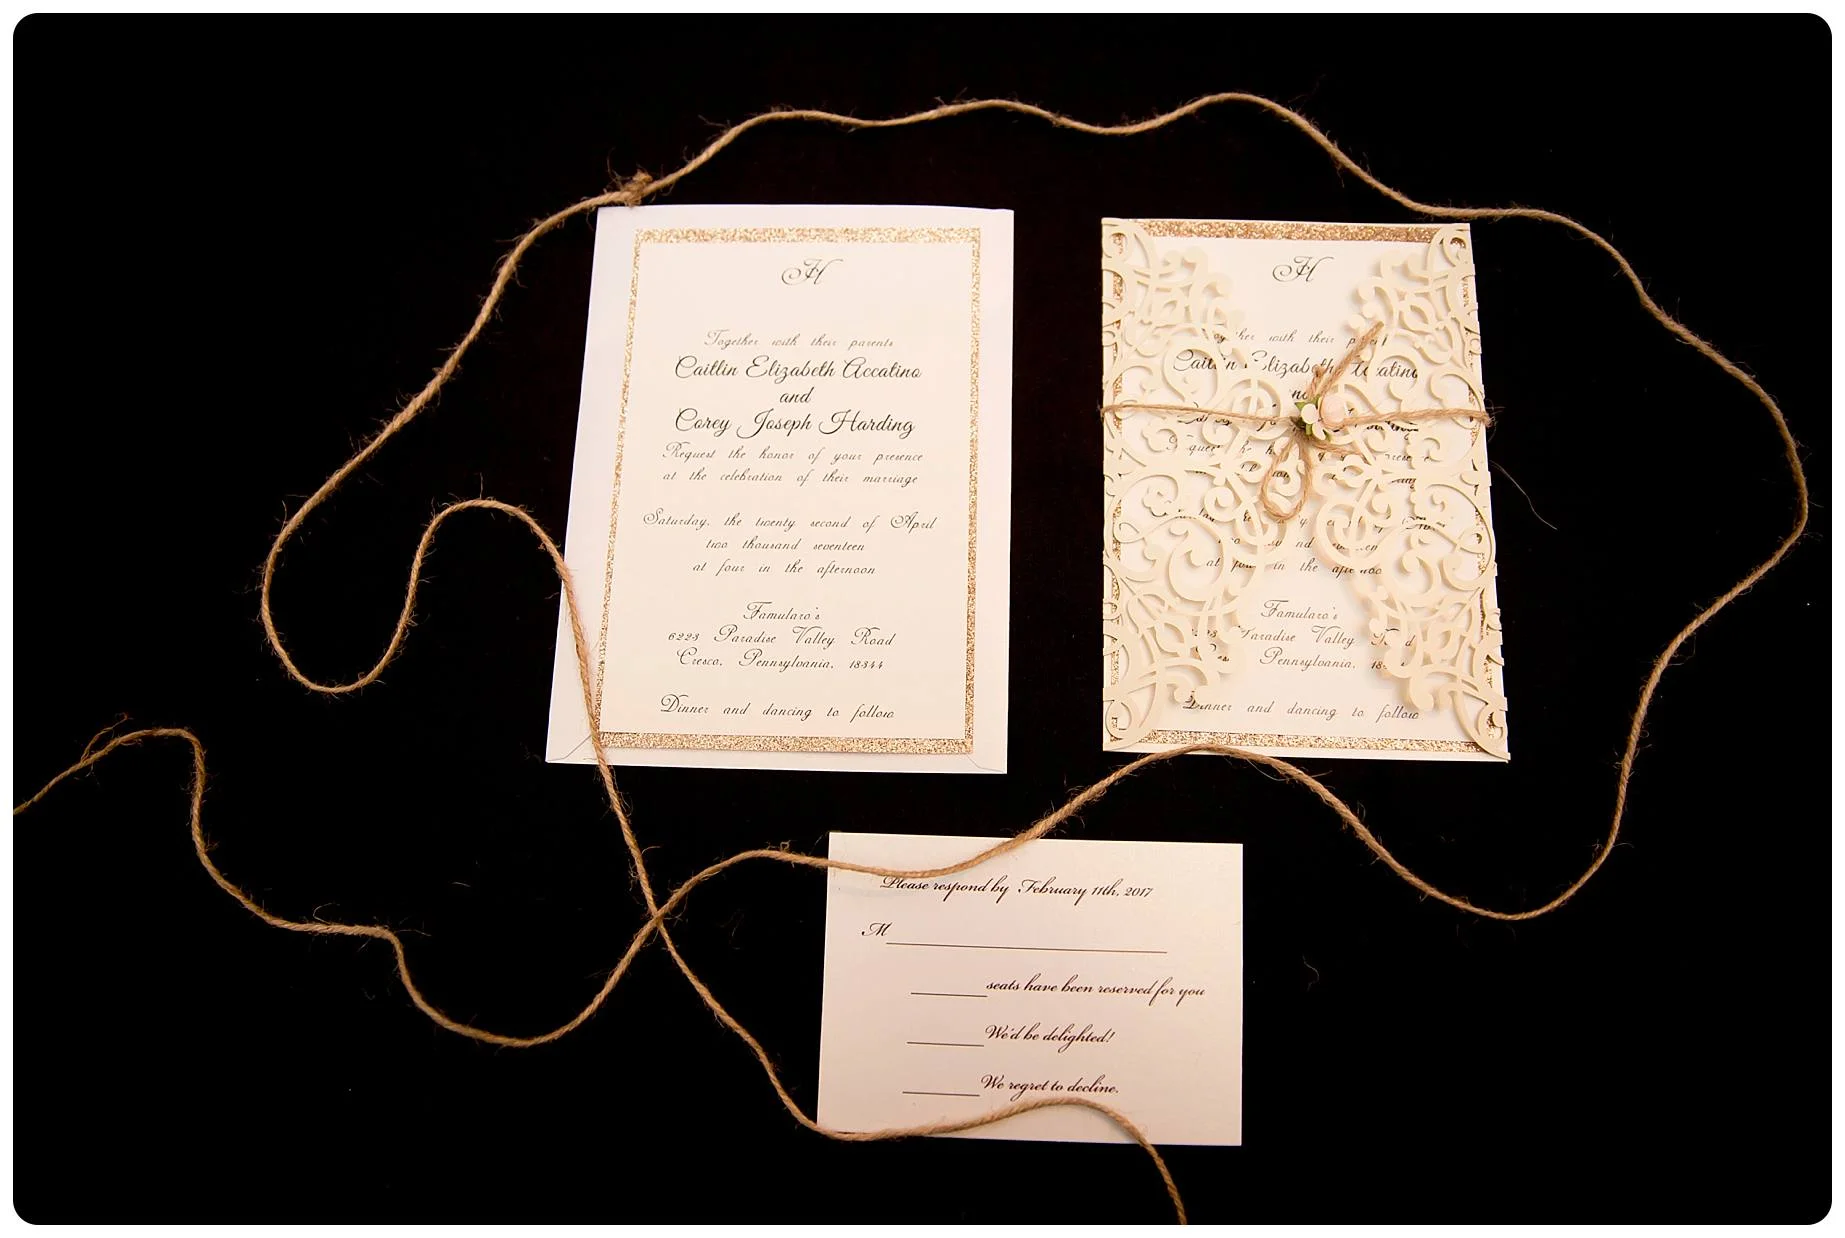 H
Together with their parents
Caitlin Elizabeth Accatino
and
Corey Joseph Harding
Request the honor of your presence
at the celebration of their marriage
Saturday, the twenty second of April
two thousand seventeen
at four in the afternoon
Famularo's
6223 Paradise Valley Road
Cresco, Pennsylvania, 18344
Dinner and dancing to follow
H
with their
Caitlin Elizabeth Accatino
in the
Famularo's
Paradise Valley Road
Pennsylvania,
Dinner and dancing to follow
Please respond by February 11th, 2017
M
seats have been reserved for you
We'd be delighted!
We regret to decline.